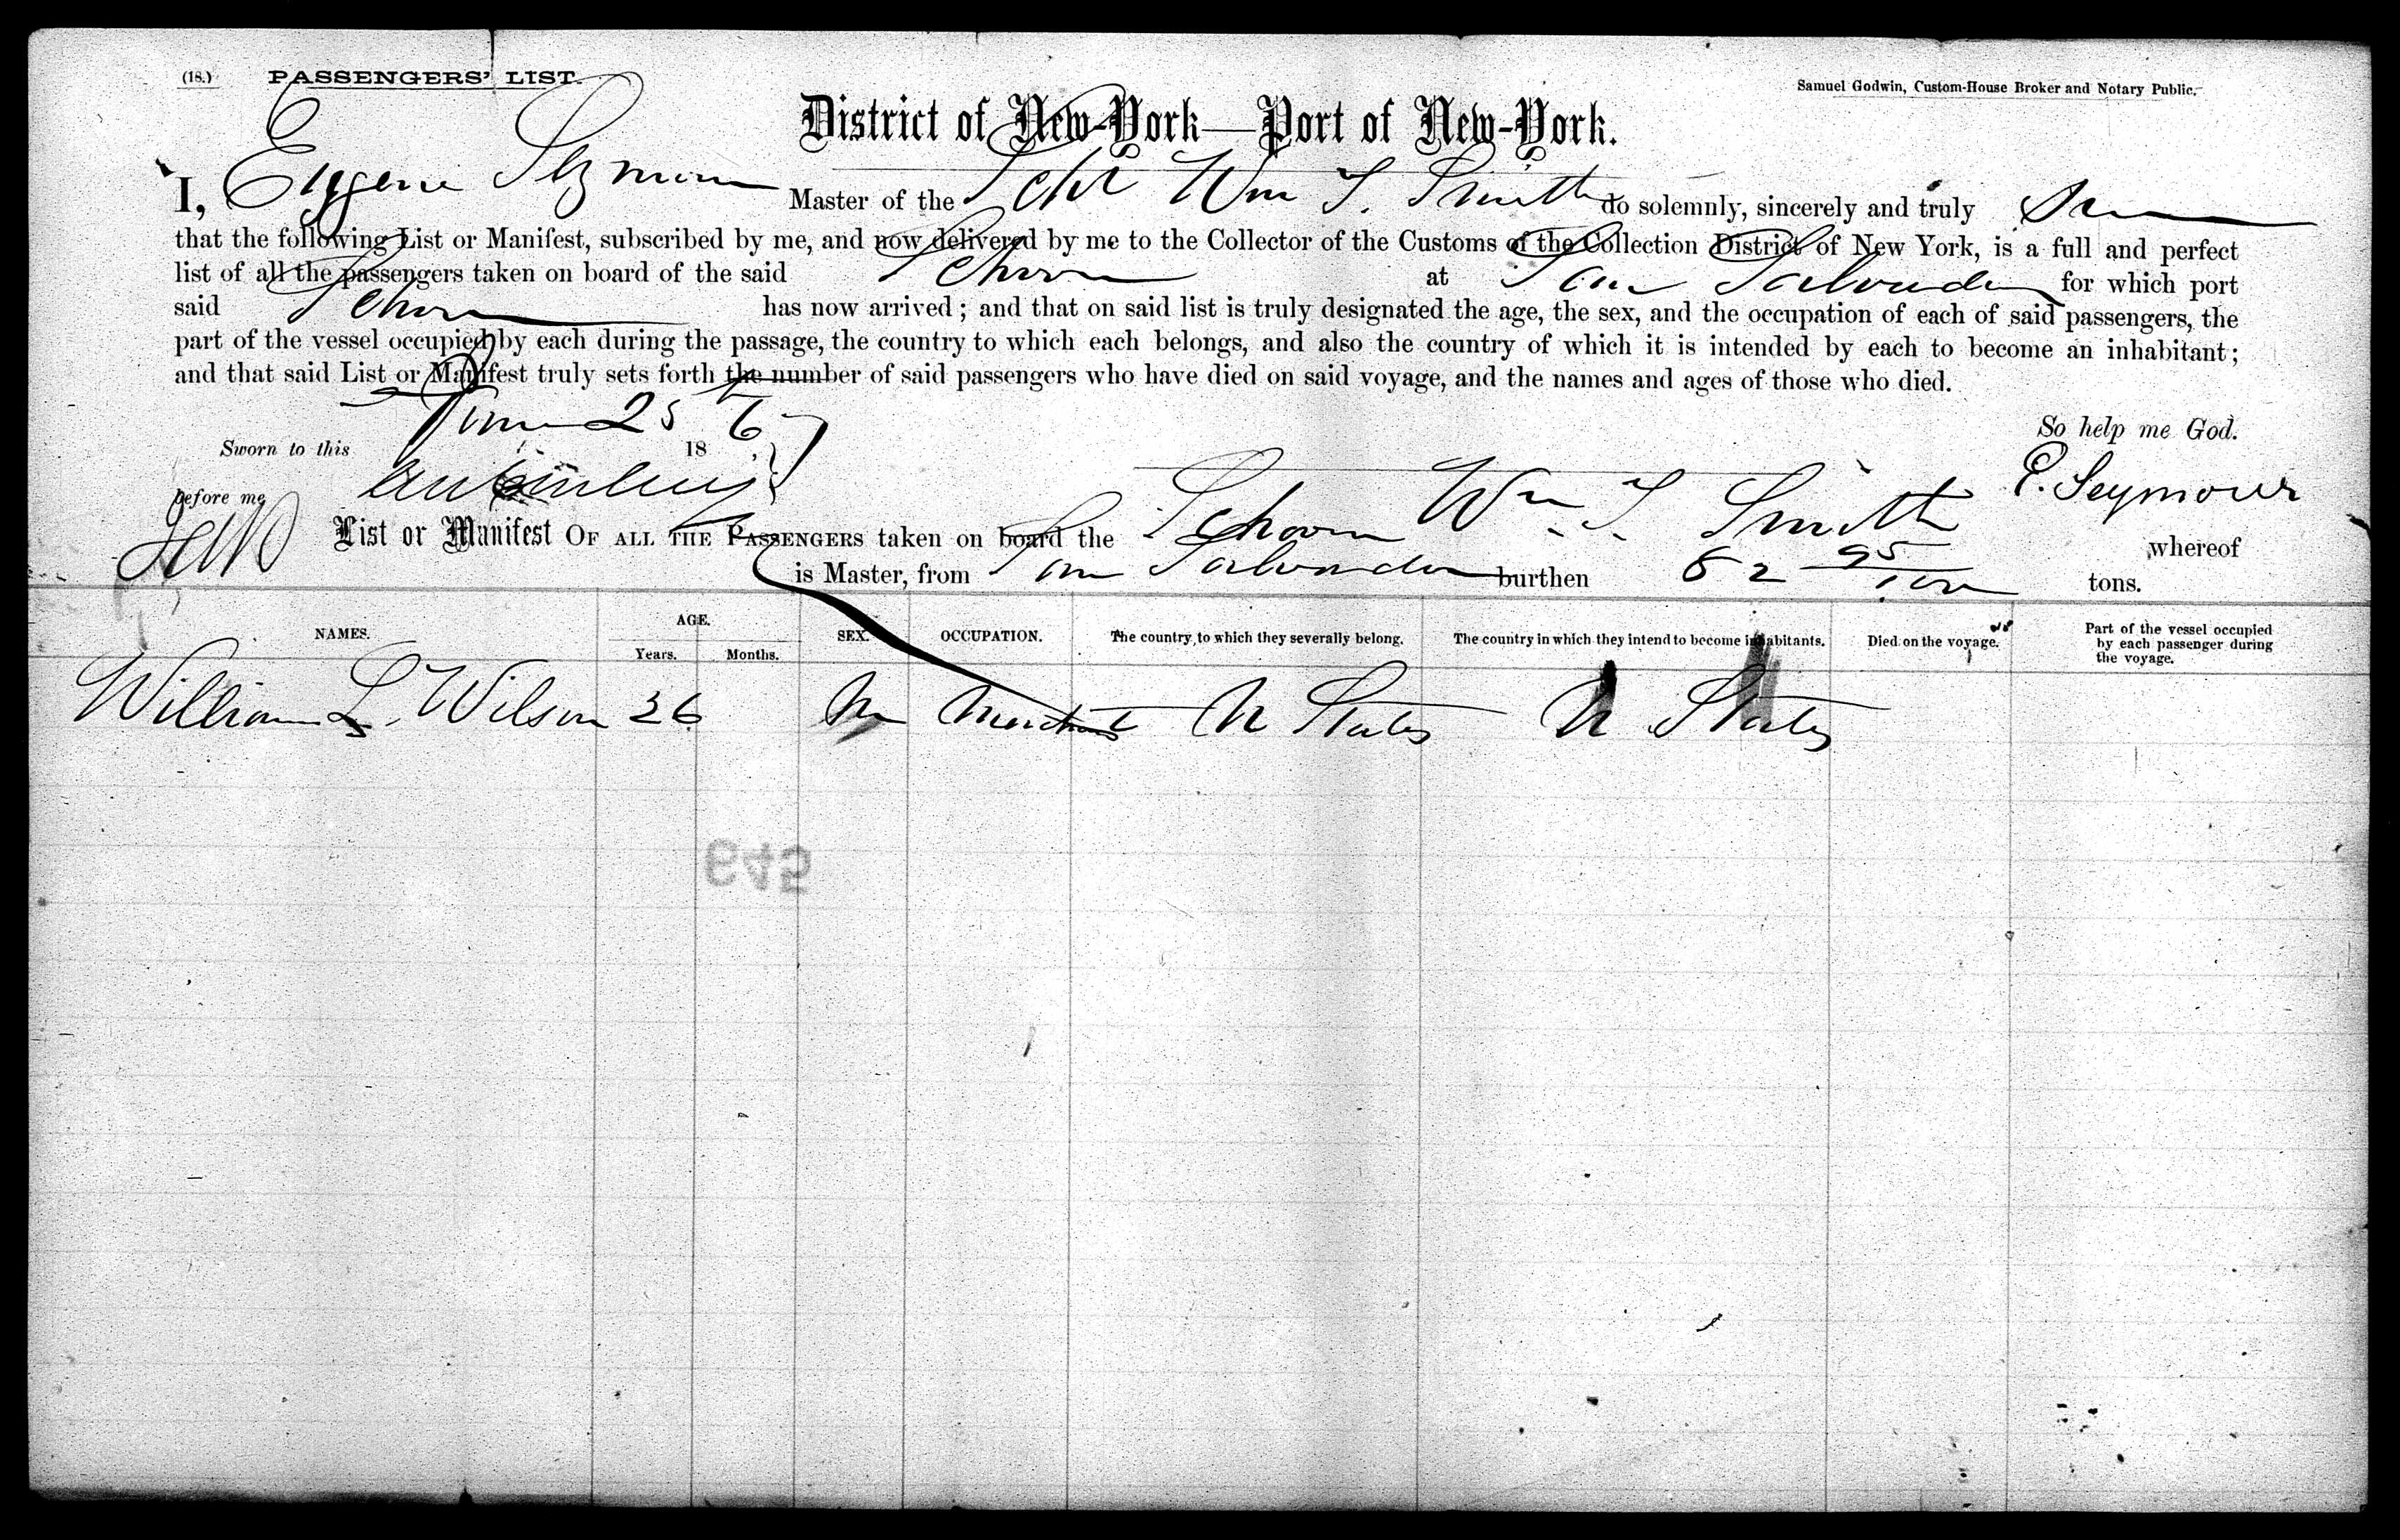 (18.) PASSENGERS' LIST.
Samuel Godwin, Custom-House Broker and Notary Public.
District of New-York—Port of New-York.
I, Eugene Seymour Master of the Schr Wm T. Smith do solemnly, sincerely and truly Swear
that the following List or Manifest, subscribed by me, and now delivered by me to the Collector of the Customs of the Collection District of New York, is a full and perfect
list of all the passengers taken on board of the said Schoon at San Salvador for which port
said Schoon has now arrived; and that on said list is truly designated the age, the sex, and the occupation of each of said passengers, the
part of the vessel occupied by each during the passage, the country to which each belongs, and also the country of which it is intended by each to become an inhabitant;
and that said List or Manifest truly sets forth the number of said passengers who have died on said voyage, and the names and ages of those who died.
So help me God.
Sworn to this June 25 18
before me
E. Seymour
List or Manifest OF ALL THE PASSENGERS taken on board the Schoon Wm T. Smith whereof
is Master, from San Salvador burthen 82 95/100 tons.
NAMES. AGE. Years. Months. SEX. OCCUPATION. The country to which they severally belong. The country in which they intend to become inhabitants. Died on the voyage. Part of the vessel occupied by each passenger during the voyage.
William L. Wilson 26 M Merchant U States U States
645